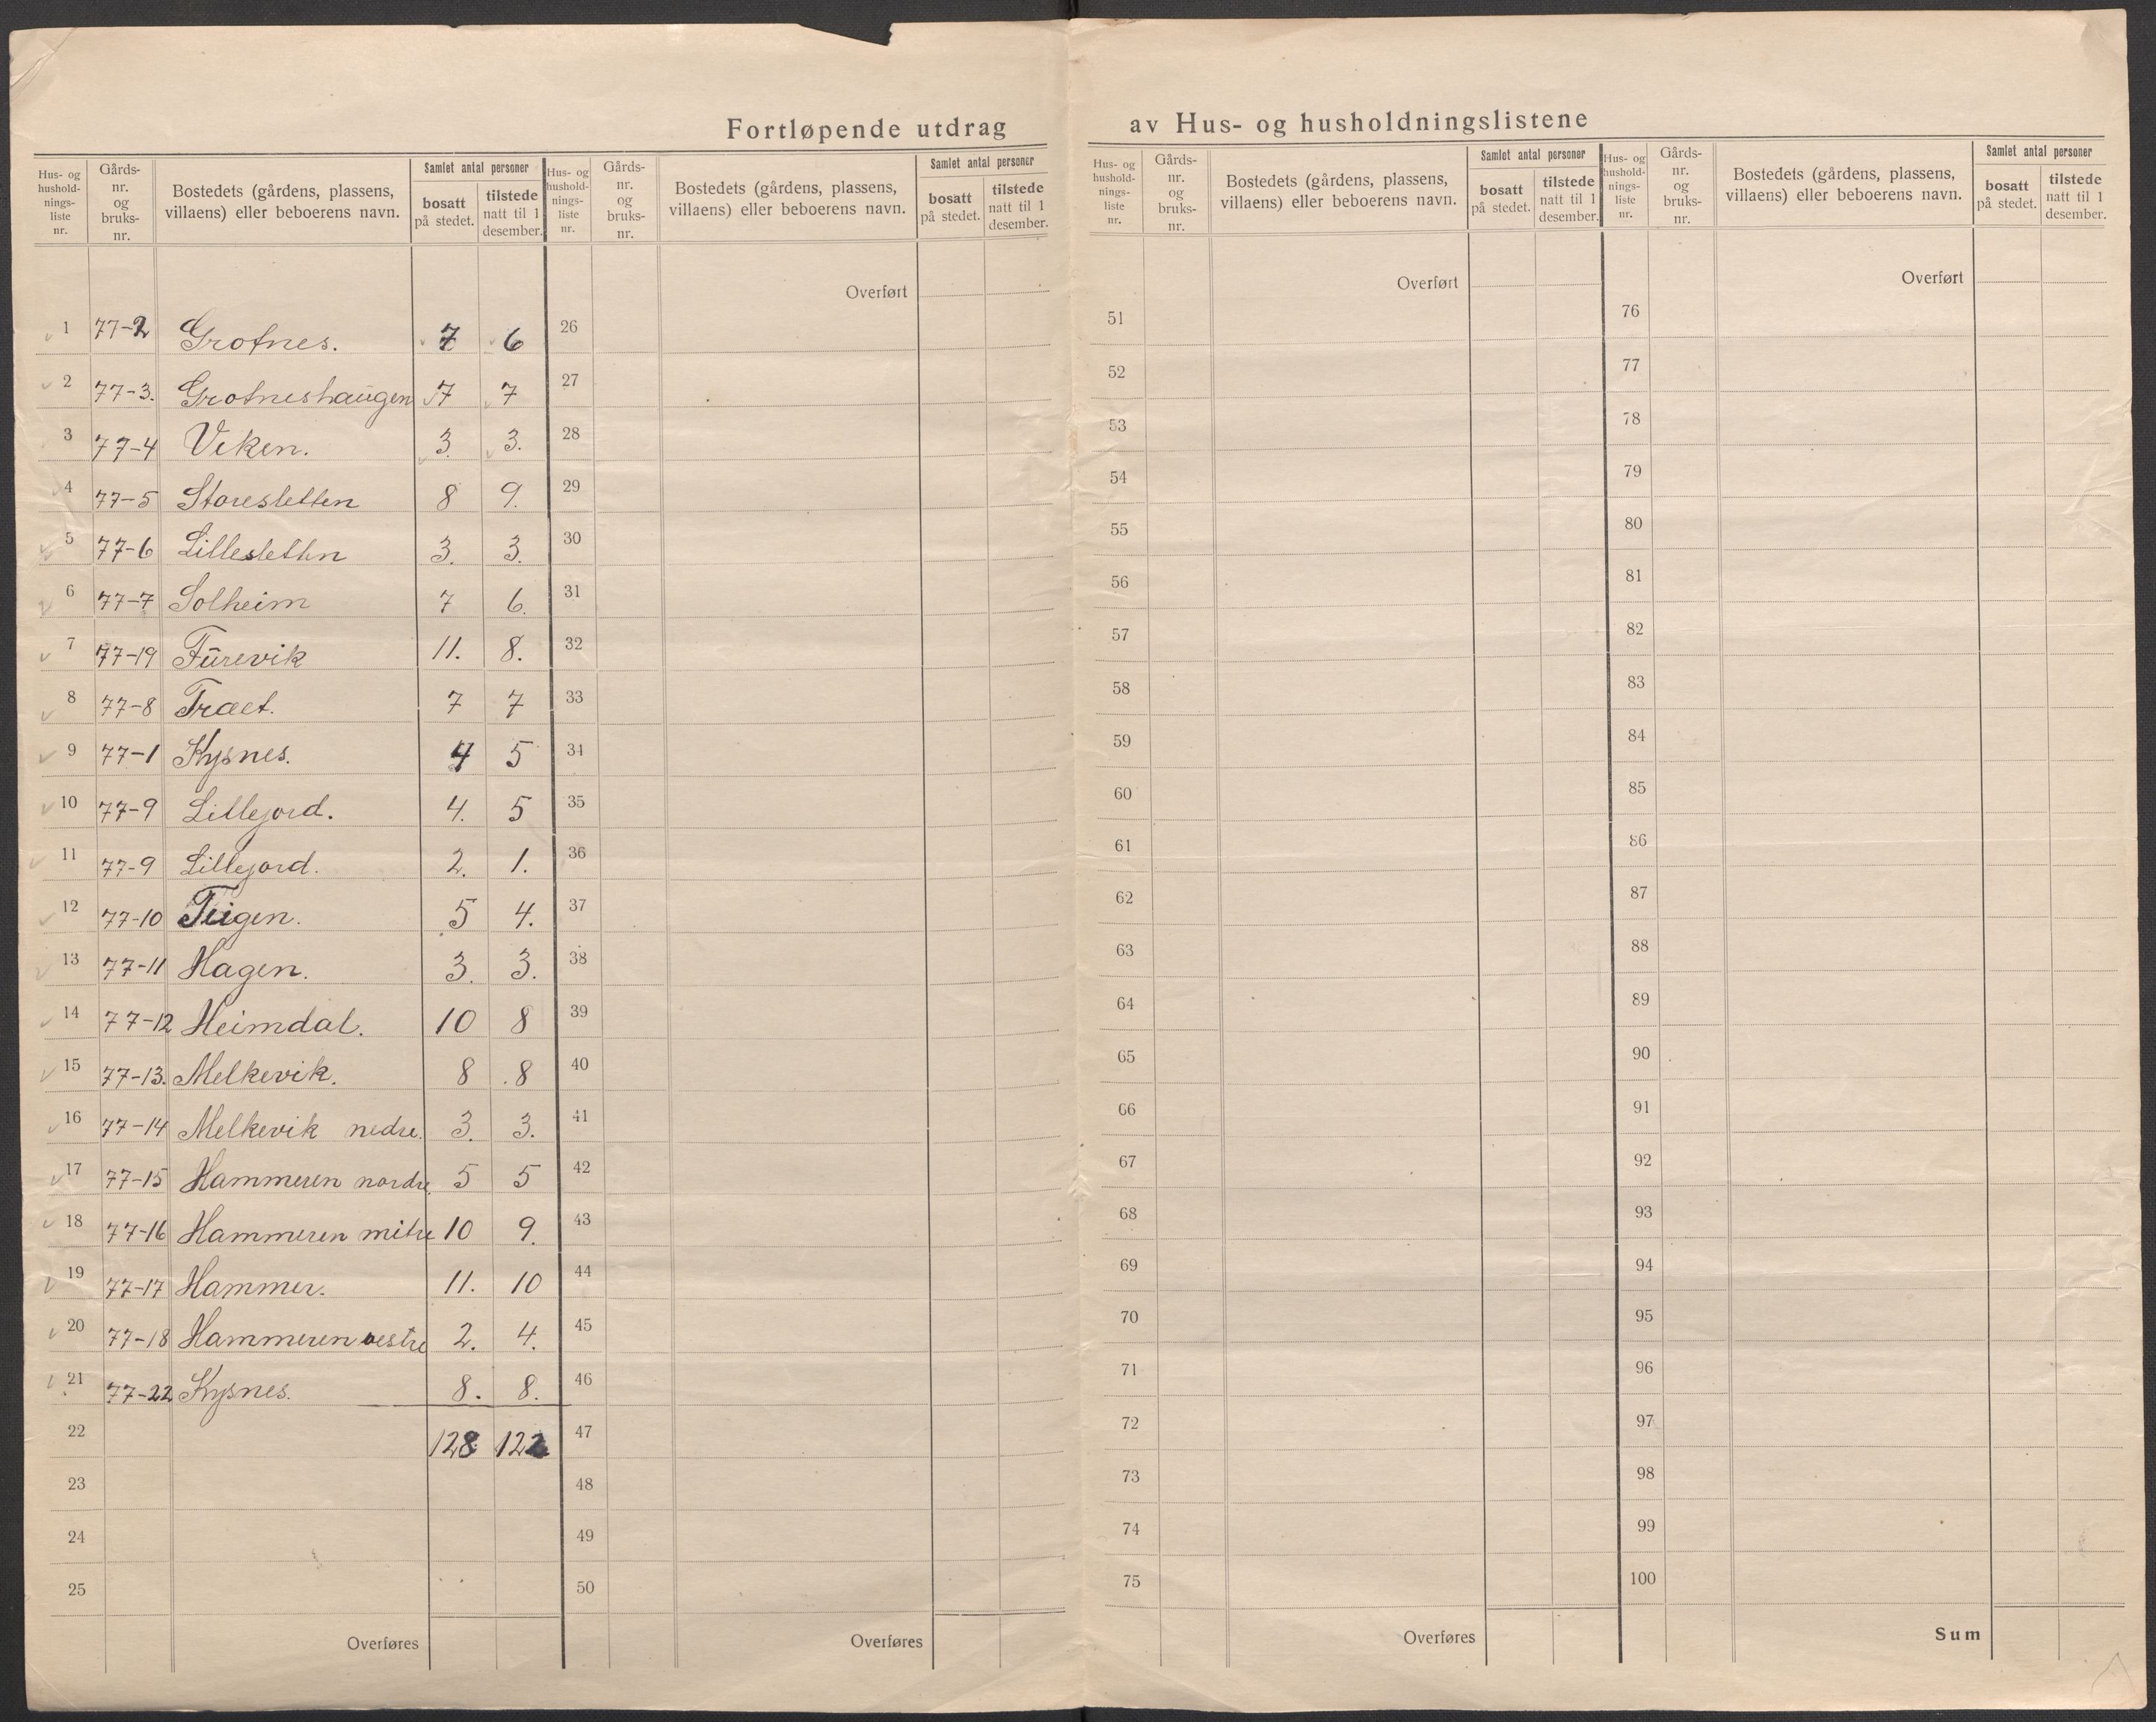 Fortløpende utdrag av Hus- og husholdningslistene
Hus- og hushold- nings- liste nr. | Gårds- nr. og bruks- nr. | Bostedets (gårdens, plassens, villaens) eller beboerens navn. | Samlet antal personer | bosatt på stedet. | tilstede natt til 1 desember.
1 77-2 Grotnes. 7 6
2 77-3. Grotneshaugen 7 7
3 77-4 Viken. 3. 3.
4 77-5 Storesletten 8 9.
5 77-6 Lillesletten 3. 3.
6 77-7 Solheim 7 6.
7 77-19 Furevik 11. 8.
8 77-8 Traet. 7 7
9 77-1 Kysnes. 4 5
10 77-9 Lillejord. 4. 5
11 77-9 Lillejord. 2. 1.
12 77-10 Teigen. 5 4.
13 77-11 Hagen. 3. 3.
14 77-12 Heimdal. 10 8
15 77-13. Melkevik. 8 8
16 77-14 Melkevik nedre. 3. 3.
17 77-15 Hammeren nordre. 5 5
18 77-16 Hammeren mitre 10 9.
19 77-17 Hammer. 11. 10
20 77-18 Hammeren vestre 2. 4.
21 77-22 Kysnes. 8. 8.
22 128 122
23
24
25
Overføres
Hus- og hushold- nings- liste nr. | Gårds- nr. og bruks- nr. | Bostedets (gårdens, plassens, villaens) eller beboerens navn. | Samlet antal personer | bosatt på stedet. | tilstede natt til 1 desember.
Overført
26
27
28
29
30
31
32
33
34
35
36
37
38
39
40
41
42
43
44
45
46
47
48
49
50
Overføres
Hus- og hushold- nings- liste nr. | Gårds- nr. og bruks- nr. | Bostedets (gårdens, plassens, villaens) eller beboerens navn. | Samlet antal personer | bosatt på stedet. | tilstede natt til 1 desember.
Overført
51
52
53
54
55
56
57
58
59
60
61
62
63
64
65
66
67
68
69
70
71
72
73
74
75
Overføres
Hus- og hushold- nings- liste nr. | Gårds- nr. og bruks- nr. | Bostedets (gårdens, plassens, villaens) eller beboerens navn. | Samlet antal personer | bosatt på stedet. | tilstede natt til 1 desember.
Overført
76
77
78
79
80
81
82
83
84
85
86
87
88
89
90
91
92
93
94
95
96
97
98
99
100
Sum